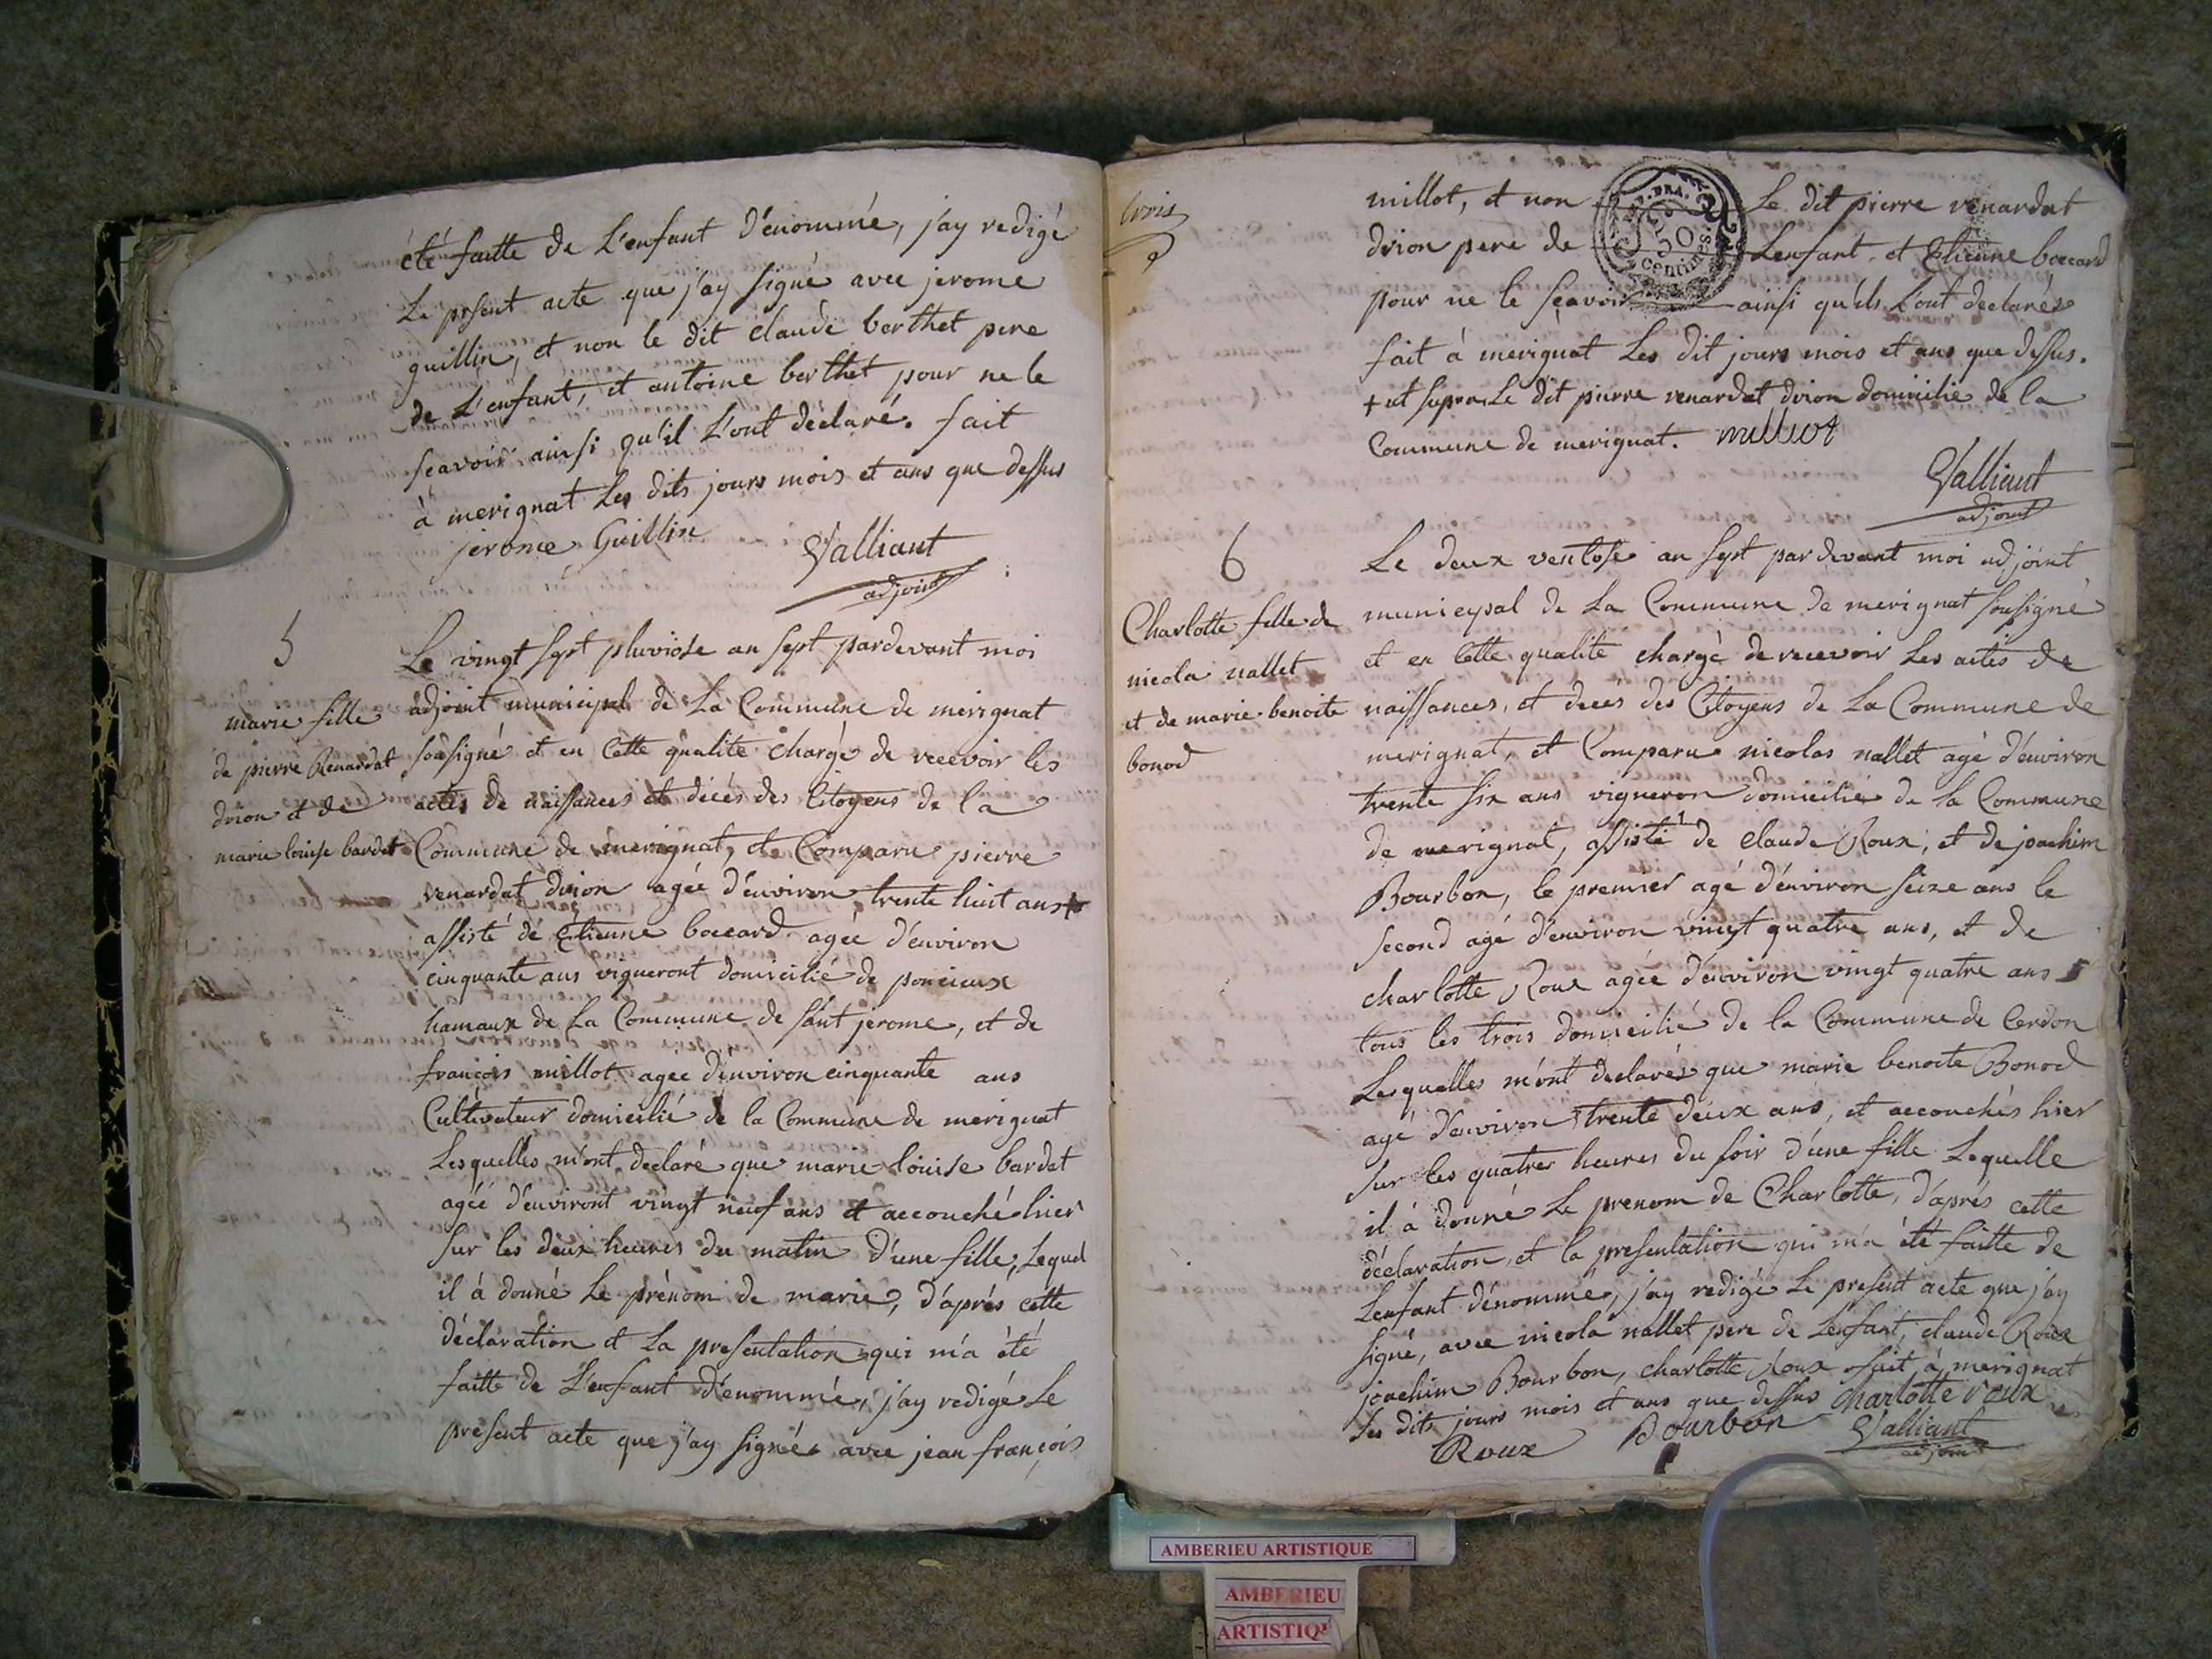 été faitte de L'enfant dénommé, j'ay redigé
Le prsent acte que j'ay signé avec jerome
guillin, et non le dit claude berthet pere
de L'enfant, et antoine berthet pour ne le
scavoir ainsi qu'il L'ont déclaré. fait
à merignat Les dits jours mois et ans que dessus
jerome Guillin
Valliant
adjoint
5
marie fille
de pierre Renardat
drion et de
marie louise bardet
Le vingt sept pluviose an sept pardevant moi
adjoint municipal de La Commune de merignat
sousigné et en Cette qualité chargé de recevoir les
actes de naissances et décés des Citoyens de la
Commune de merignat, et Comparu pierre
renardat drion agée d'environ trente huit ans +
assisté de Etienne boccard agée d'environ
cinquante ans vigneront domicilié de poncieux
hamaux de La Commune de saint jerome, et de
françois millot agée d'environ cinquante ans
Cultivateur domicilié de la Commune de merignat
Lesquelles m'ont declaré que marie louise bardet
agée d'environt vingt neuf ans et accouché hier
sur les deux heures du matin d'une fille, Lequel
il à donné Le prénom de marie, d'aprés cette
déclaration et La presentation qui m'a été
faitte de L'enfant dénommé, j'ay redigé Le
présent acte que j'ay signé avec jean françois
trois
millot, et non Le dit pierre renardat
drion pere de Lenfant, et Etienne boccard
pour ne le scavoir ainsi qu'ils L'ont declarés
50
Centimes
fait à merignat Les dit jours mois et ans que dessus.
+ ut supra Le dit pierre renardat drion domicilié de la
Commune de merignat. milliot
Valliant
adjoint
6
Charlotte fille de
nicola nallet
et de marie benoite
bonod
Le deux ventose an sept pardevant moi adjoint
municpal de La Commune de merignat sousigné
et en Cette qualité chargé de recevoir Les actes de
naissances, et decés des Citoyens de La Commune de
merignat, et Comparu nicolas nallet agé d'environ
trente six ans vigneron domicilié de la Commune
de merignat, assisté de claude Roux, et de joachim
Bourbon, le premier agé d'environ seize ans le
second agé d'environ vingt quatre ans, et de
charlotte Roux agée d'environ vingt quatre ans
tous les trois domicilié de la Commune de Cerdon
Lesquelles m'ont declarés que marie benoite Bonod
agé d'environ trente deux ans, et accouchés hier
sur les quatre heures du soir d'une fille Lequelle
il à donné Le prenom de Charlotte, d'aprés cette
déclaration, et la presentation qui m'a été faitte de
Lenfant dénommé, j'ay redigé Le présent acte que j'ay
signé, avec nicola nallet pere de Lenfant, claude Roux
joachim Bourbon, charlotte Roux fait à merignat
Les dits jours mois et ans que dessus charlotte roux
Roux Bourbon Valliant
adjoint
AMBERIEU ARTISTIQUE
AMBERIEU
ARTISTIQU